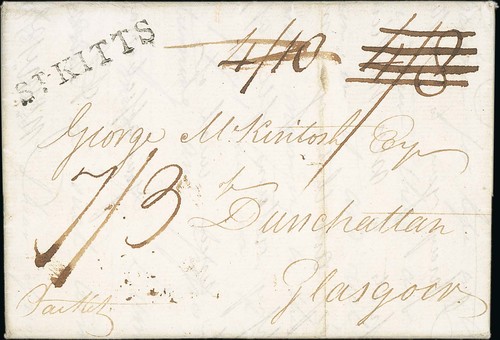 ST. KITTS
4/10 4/8
George McKintosh Esqr
7/3
of
Dunchattan
Glasgow.
Packet.